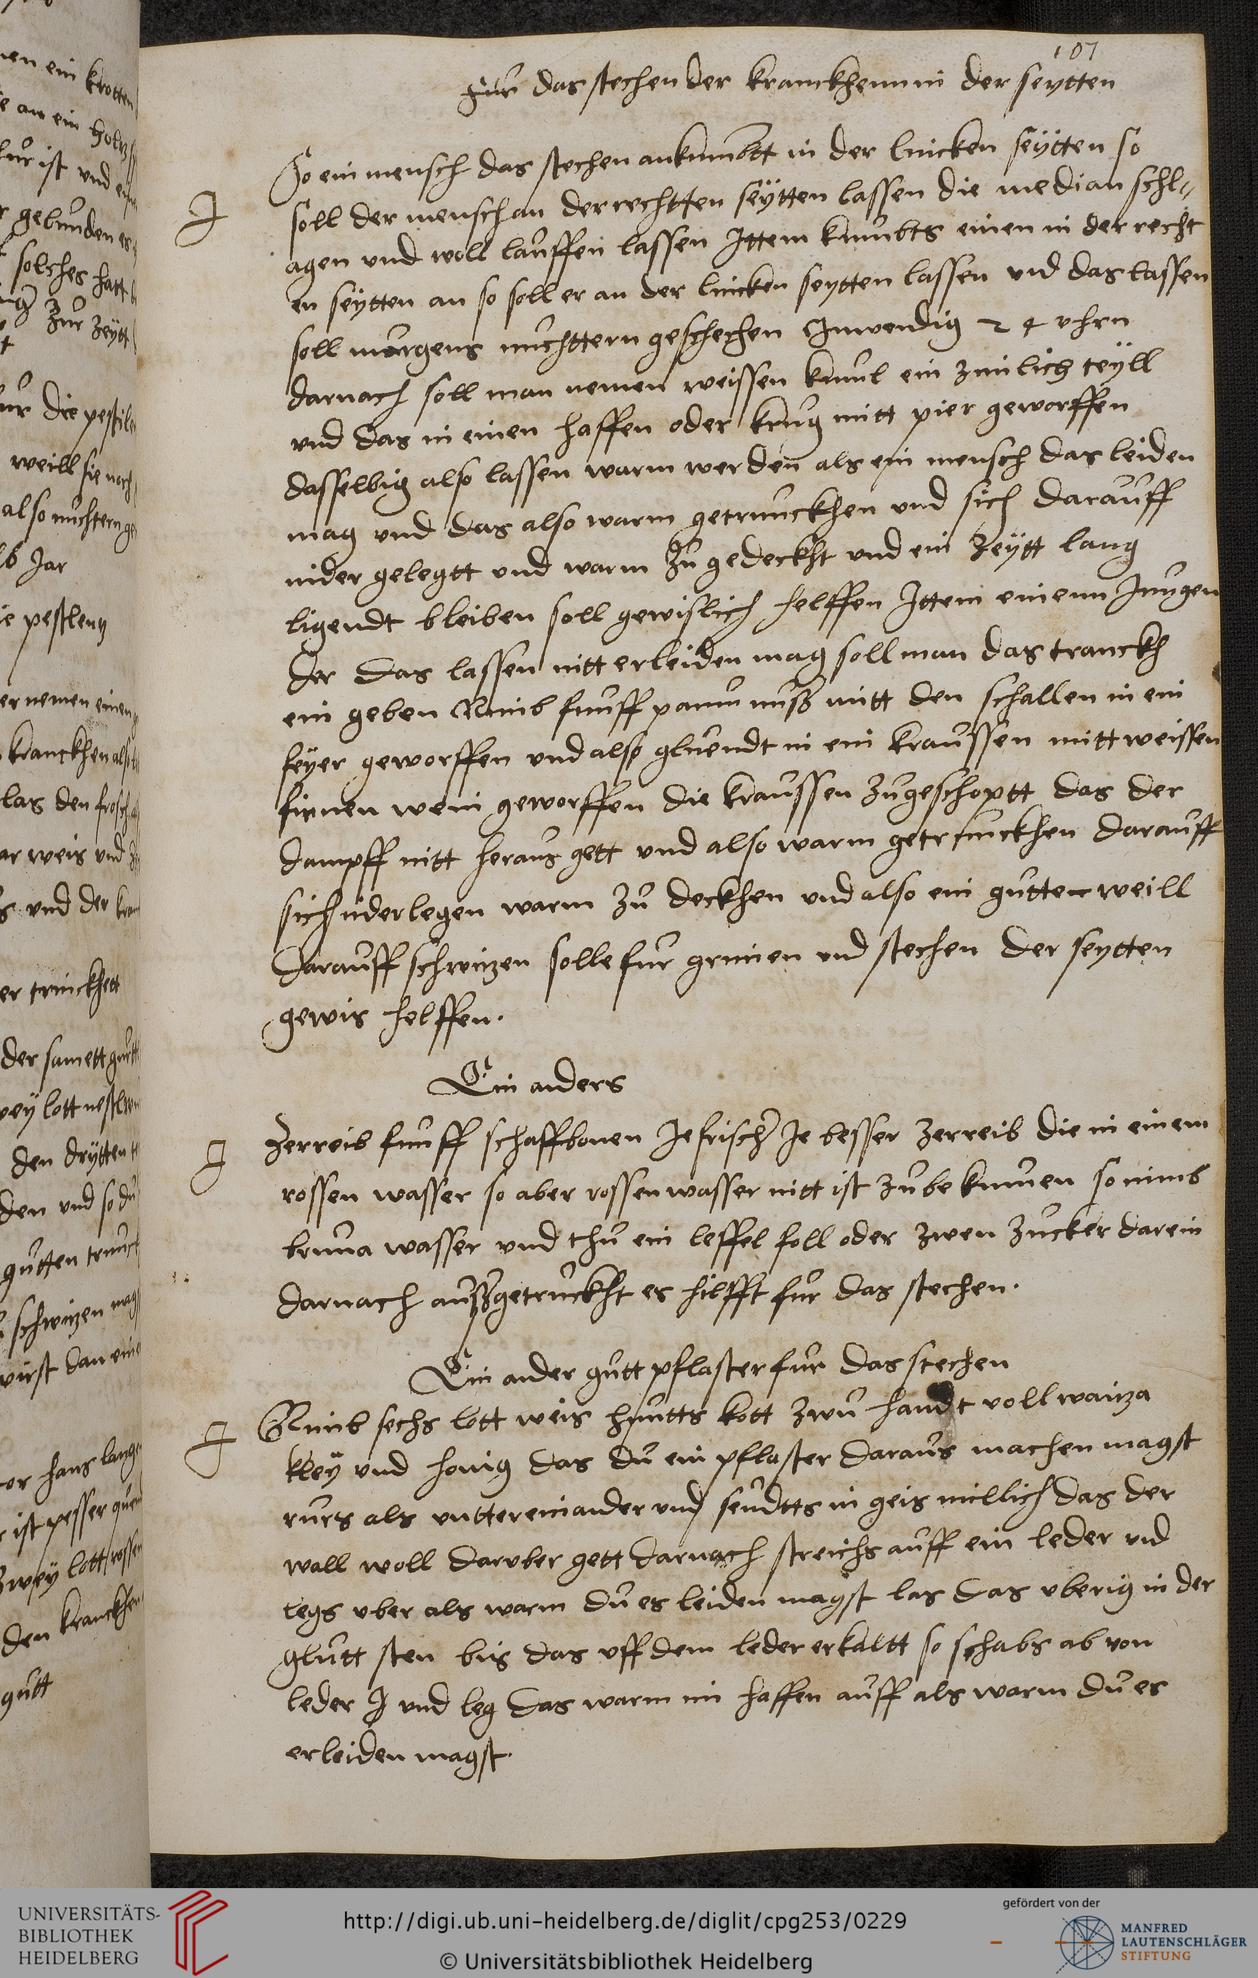 107
Für das stechen der kranckhenn in der seytten
So ein mensch das stechen ankumbtt in der lincken seÿtten so
soll der mensch an der rechtten seÿtten lassen die median schl-
agen vnd woll lauffen lassen Ittem kumbts einen in der recht
en seÿtten an so soll er an der lincken seytten lassen vnd das lassen
soll morgens nuchttern geschechen Inwendig 24 vhrn
darnach soll man nemen weissen kimel ein zimlich teÿll
vnd das in einen haffen oder krug mitt pier geworffen
dasselbig also lassen warm werden als ein mensch das leiden
mag vnd das also warm getrunckhen vnd sich darauff
nider gelegtt vnd warm zu gedeckht vnd ein zeÿtt lang
ligendt bleiben soll gewislich helffen Ittem einenn Jungen
der das lassen nitt erleiden mag soll man das tranckh
ein geben Nimb funff paumnuß mitt den schallen in ein
feÿer geworffen vnd also gluendt in ein kraussen mitt weissen
firnen wein geworffen die kraussen zugeschoptt das der
dampff nitt heraus gett vnd also warm getrunckhen darauff
sich niderlegen warm zu deckhen vnd also ein gutten weill
darauff schwizen solle fur grimen vnd stechen der seytten
gewis helffen.
Ein anders
Zerreib funff schaffbonen Je frischer Je besser zerreib die in einem
rossen wasser so aber rossenwasser nitt ist zubekumen so nimb
bruna wasser vnd thu ein leffel foll oder zwen zucker darein
darnach außgetruckht es hilfft fur das stechen.
Ein ander gutt pflaster fur das stechen
Nimb sechs lott weis huntts kott zwu handt voll waiza
kleÿ vnd honig das du ein pflaster daraus machen magst
rurs als vnttereinander vnd seudtts in geis millich das der
wall woll daruber gett darnach streichs auff ein leder vnd
legs vber als warm du es leiden magst las das vberig in der
glutt sten bis das vff dem leder erkaltt so schabs ab von
leder vnd leg das warm im haffen auff als warm du es
erleiden magst.
UNIVERSITÄTS-
BIBLIOTHEK
HEIDELBERG
http://digi.ub.uni-heidelberg.de/diglit/cpg253/0229
© Universitätsbibliothek Heidelberg
gefördert von der
MANFRED
LAUTENSCHLÄGER
STIFTUNG